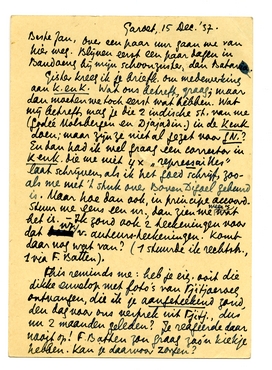 Garoet, 15 Dec. '37.
Beste Jan, over een paar uur gaan we van
hier weg. Blijven eerst een paar dagen in
Bandoeng bij mijn schoonzuster, dan Batavia.
Gister kreeg ik je briefk. om medewerking
aan K. en K. Wat ons betreft, graag; maar
dan moeten we toch eerst wat hebben. Wat
mij betreft, mag je die 2 indische st. van me
(Goeie Moedergen en Djapidin) in de Kenk
doen; maar zijn ze niet al gezet voor I.N.?
En dan had ik wel graag een corrector in
K en K. die me niet ijx "repressailles"
laat schrijven, als ik het goed schrijf, zoo-
als me met 't stuk over Boven Digoel gebeurd
is. Maar hoe dan ook, in principe accoord.
Stuur me eens een nr. dan zien we wat
het is. – Ik zond ook 2 teekeningen voor
dat v. auteursteekeningen. Komt
daar nog wat van? (1 stuurde ik rechtstr.,
1 via F. Batten).
This reminds me: heb je eig. ooit die
dikke envelop met foto's van Tjitjoeroeg
ontvangen, die ik je aangeteekend zond,
den dag voor ons vertrek uit Tjitj., dus
nu 2 maanden geleden? Je reageerde daar
nooit op! F. Batten zou graag zoo'n kiekje
hebben. Kan je daarvoor zorgen?